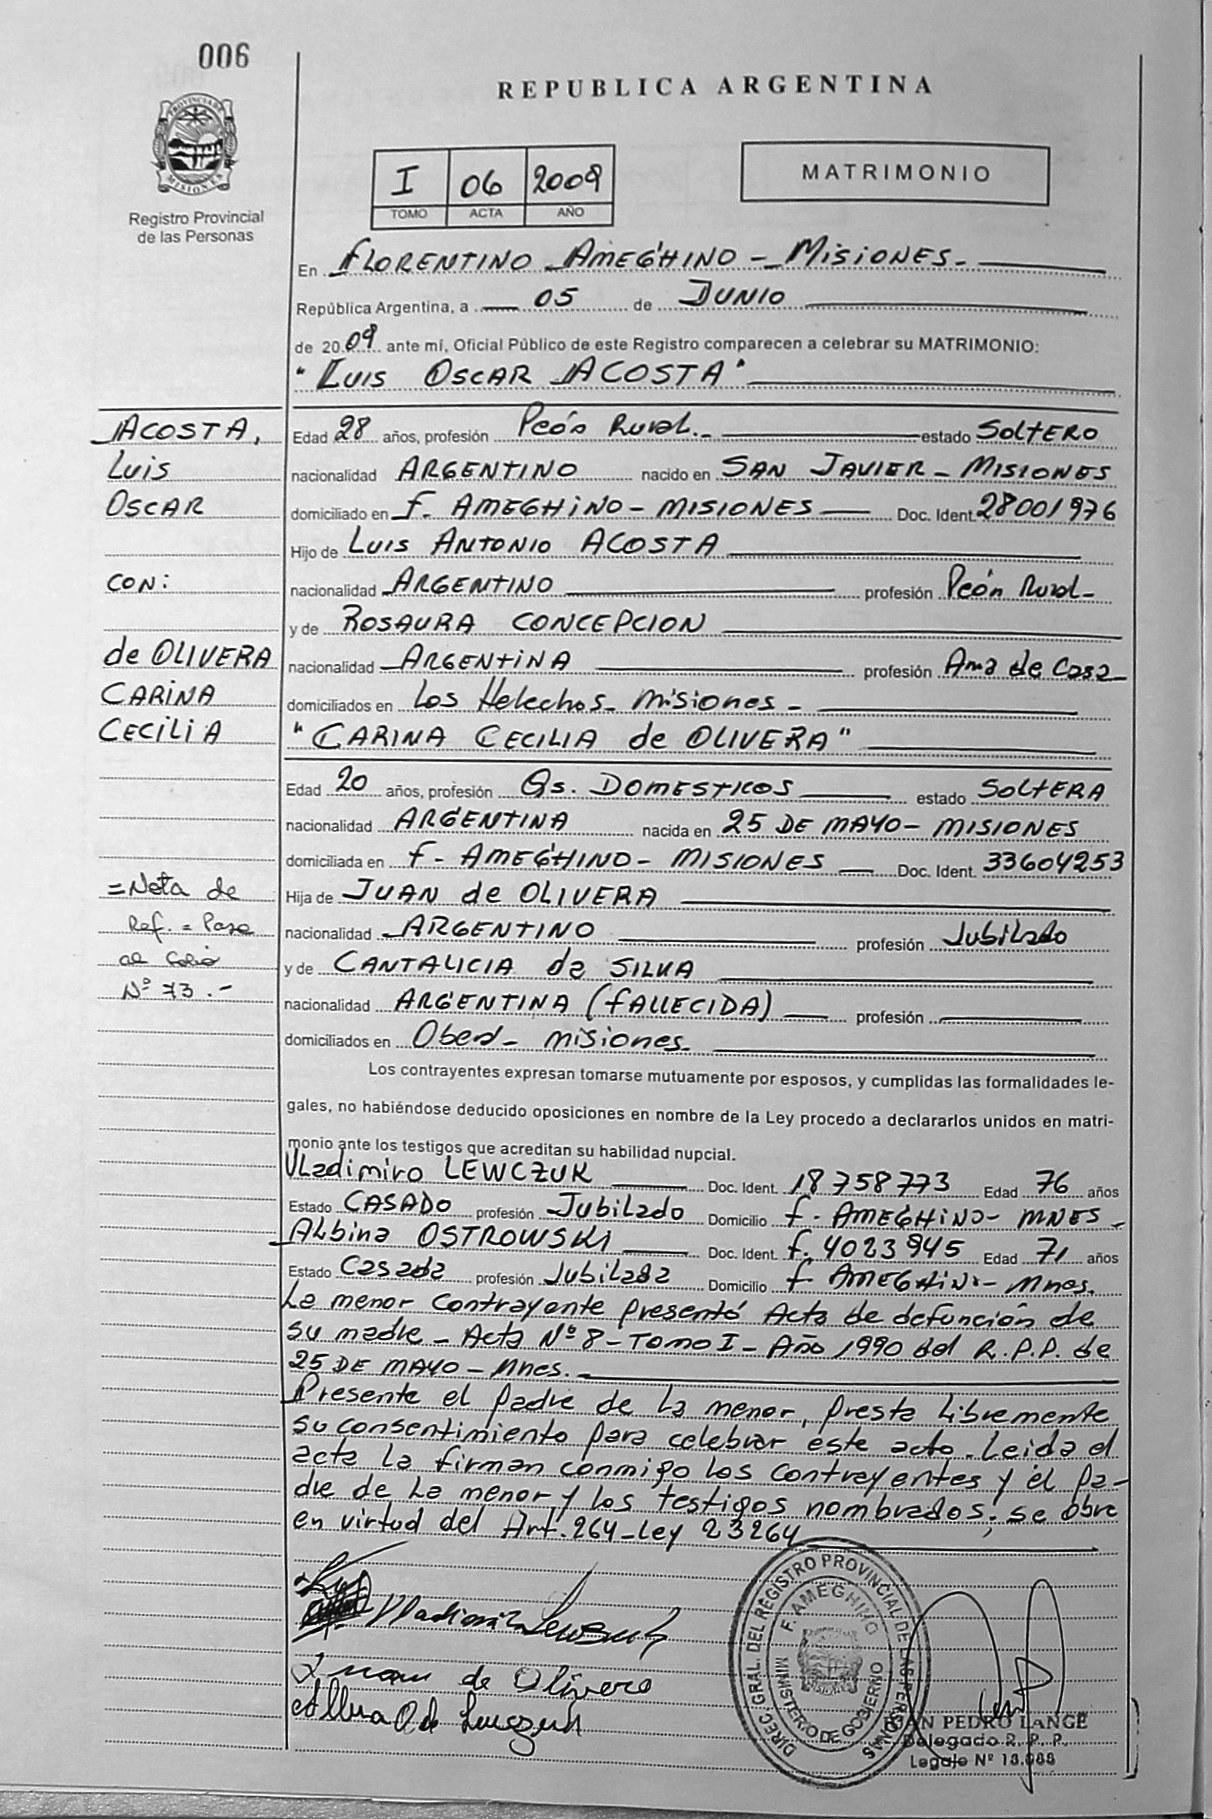 006
REPUBLICA ARGENTINA
PROVINCIA DE
MISIONES
Registro Provincial
de las Personas
I 06 2009
TOMO ACTA AÑO
MATRIMONIO
En FLORENTINO AMEGHINO - MISIONES -
República Argentina, a 05 de JUNIO
de 2009 ante mí, Oficial Público de este Registro comparecen a celebrar su MATRIMONIO:
"LUIS OSCAR ACOSTA"
ACOSTA,
Luis
OSCAR
CON:
de OLIVERA
CARINA
CECILIA
Edad 28 años, profesión Peón Rural.- estado SOLTERO
nacionalidad ARGENTINO nacido en SAN JAVIER - MISIONES
domiciliado en f. AMEGHINO - MISIONES Doc. Ident. 28001976
Hijo de LUIS ANTONIO ACOSTA
nacionalidad ARGENTINO profesión Peón Rural -
y de ROSAURA CONCEPCION
nacionalidad ARGENTINA profesión Ama de Casa
domiciliados en Los Helechos - Misiones -
"CARINA CECILIA de OLIVERA"
Edad 20 años, profesión Qs. DOMESTICOS estado SOLTERA
nacionalidad ARGENTINA nacida en 25 DE MAYO - MISIONES
domiciliada en f - AMEGHINO - MISIONES Doc. Ident. 33604253
= Nota de
Ref. = Pasa
al folio
Nº 73 .-
Hija de JUAN de OLIVERA
nacionalidad ARGENTINO profesión Jubilado
y de CANTALICIA da SILVA
nacionalidad ARGENTINA (fALLECIDA) profesión
domiciliados en Oberá - Misiones -
Los contrayentes expresan tomarse mutuamente por esposos, y cumplidas las formalidades le-
gales, no habiéndose deducido oposiciones en nombre de la Ley procedo a declararlos unidos en matri-
monio ante los testigos que acreditan su habilidad nupcial.
Vladimiro LEWCZUK Doc. Ident. 18758773 Edad 76 años
Estado CASADO profesión Jubilado Domicilio f. AMEGHINO - MNES -
Albina OSTROWSKI Doc. Ident. f. 4023945 Edad 71 años
Estado Casada profesión Jubilada Domicilio f AMEGHINO - Mnes.
La menor contrayente presentó Acta de defunción de
su madre - Acta Nº 8 - Tomo I - Año 1990 del R.P.P. de
25 DE MAYO - Mnes.
Presente el padre de la menor, presta libremente
su consentimiento para celebrar este acto. Leida el
acta la firman conmigo los contrayentes y el pa-
dre de la menor, y los testigos nombrados; se obre
en virtud del Art. 264 - Ley 23264
Juan de Olivera
DIREC. GRAL. DEL REGISTRO PROVINCIAL DE LAS PERSONAS
F. AMEGHINO
MINISTERIO DE GOBIERNO
JUAN PEDRO LANGE
Delegado R. P. P.
Legajo Nº 13.088